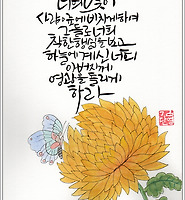 너희 빛이
사람 앞에 비치게 하여
그들로 너희
착한 행실을 보고
하늘에 계신 너희
아버지께
영광을 돌리게
하라